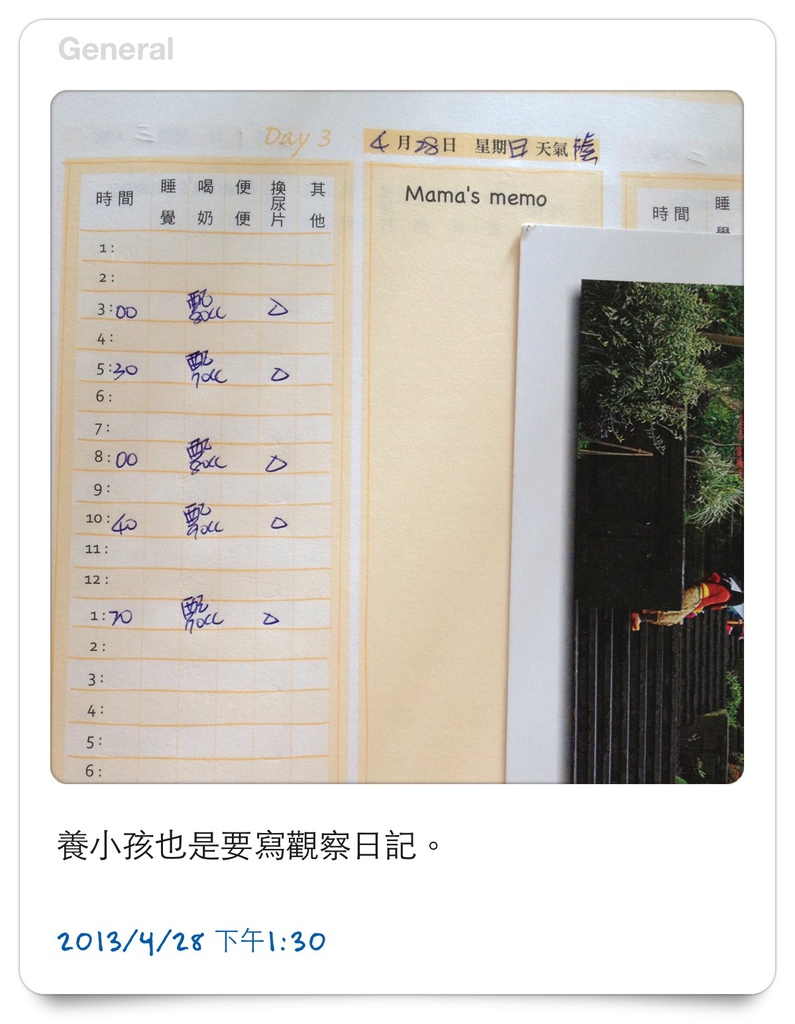 General
Day 3
4月28日 星期日 天氣陰
時間 睡覺 喝奶 便便 換尿片 其他
Mama's memo
時間 睡覺
1:
2:
3:00 配 80cc △
4:
5:30 配 70cc △
6:
7:
8:00 配 80cc △
9:
10:40 配
11:
12:
1:20 配 70cc △
2:
3:
4:
5:
6:
養小孩也是要寫觀察日記。
2013/4/28 下午1:30